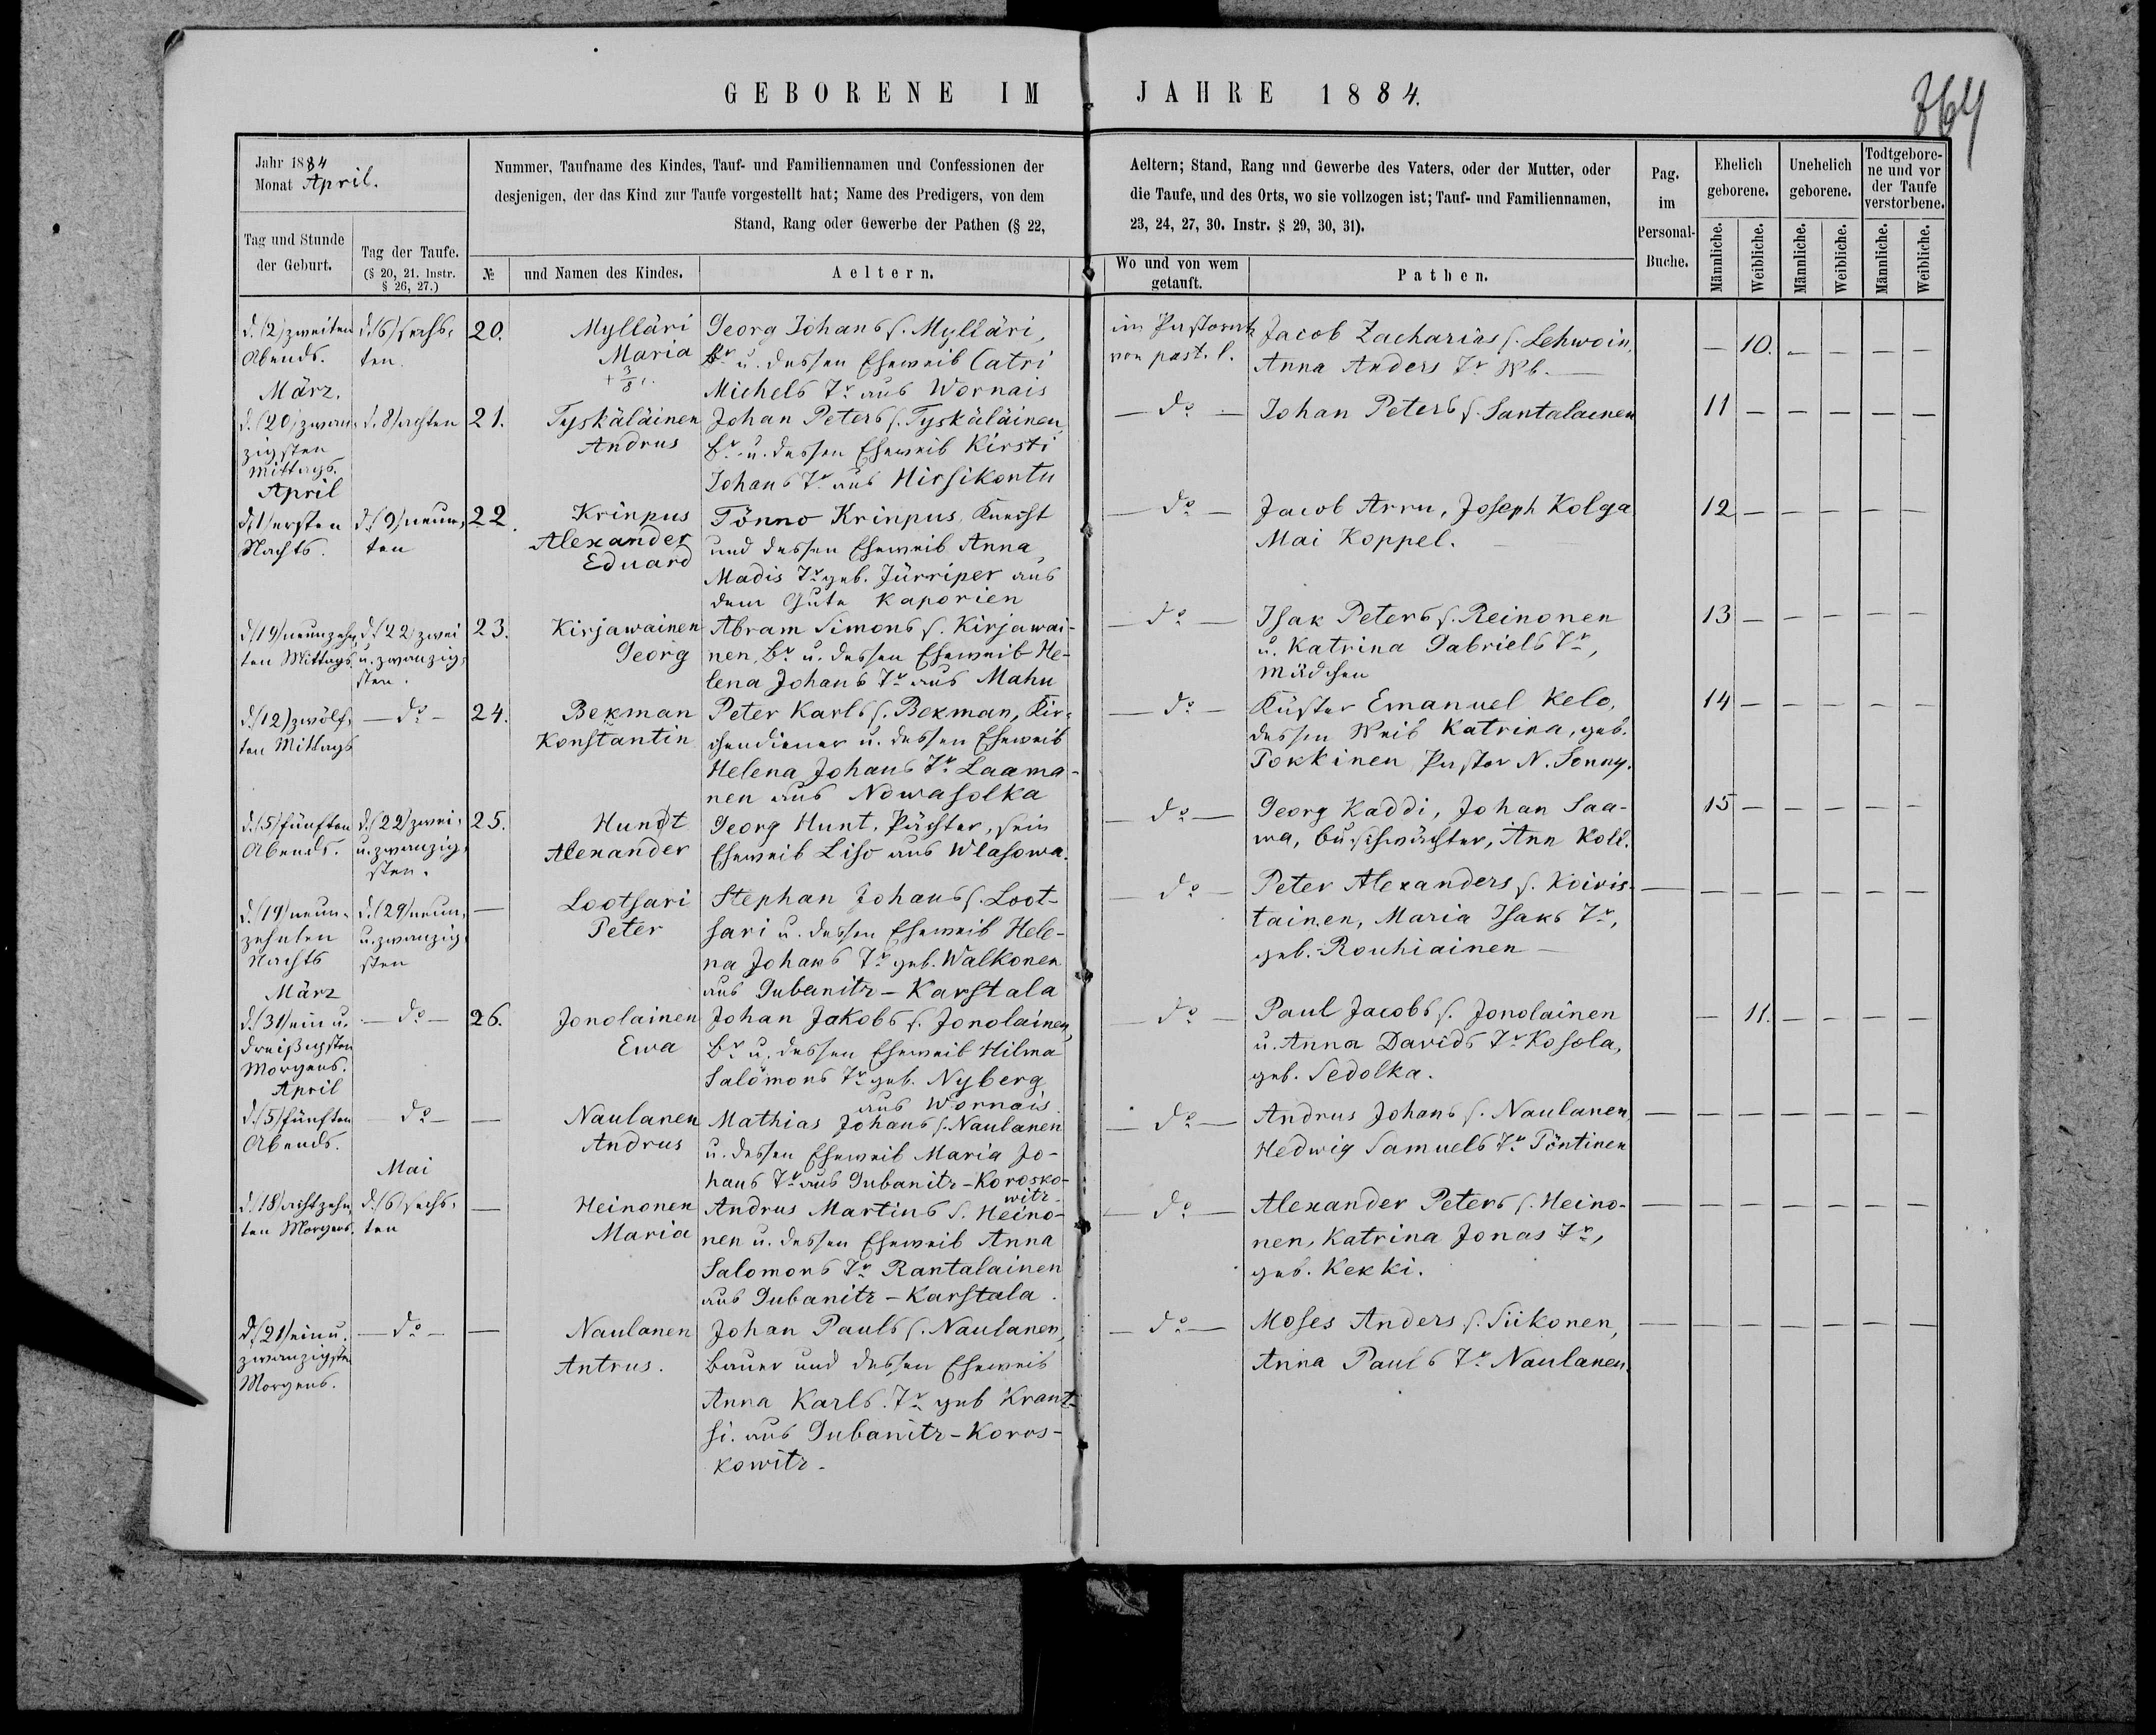 GEBORENE IM JAHRE 1884.
364
Jahr 1884
Monat April.
Nummer, Taufname des Kindes, Tauf- und Familiennamen und Confessionen der
desjenigen, der das Kind zur Taufe vorgestellt hat; Name des Predigers, von dem
Stand, Rang oder Gewerbe der Pathen (§ 22,
Aeltern; Stand, Rang und Gewerbe des Vaters, oder der Mutter, oder
die Taufe, und des Orts, wo sie vollzogen ist; Tauf- und Familiennamen,
23, 24, 27, 30. Instr. § 29, 30, 31).
Pag.
im
Personal-
Buche.
Ehelich
geborene.
Unehelich
geborene.
Todtgebore-
ne und vor
der Taufe
verstorbene.
Tag und Stunde
der Geburt.
Tag der Taufe.
(§ 20, 21. Instr.
§ 26, 27.)
№
und Namen des Kindes.
Aeltern.
Wo und von wem
getauft.
Pathen.
Männliche.
Weibliche.
Männliche.
Weibliche.
Männliche.
Weibliche.
d. (2) zweiten
Abends.
d. (6) sechs-
ten.
20.
Mylläri
Maria
Georg Johans s. Mylläri,
Br. u. dessen Eheweib Catri
Michels Tr. aus Wornais
im Pastorat
von past. l.
Jacob Zacharias s. Lehwoin,
Anna Anders Tr. Wb. —
— 10. — — — —
März.
d. (20) zwan-
zigsten
Mittags.
d. 8) achten
21.
Tyskäläinen
Andrus
Johan Peters s. Tyskäläinen,
Br. u. dessen Eheweib Kirsti
Johans Tr. aus Hirsikontu
— do —
Johan Peters s. Santalainen
11 — — — — —
April
d. (1) ersten
Nachts.
d. (9) neun-
ten
22.
Krinpus
Alexander
Eduard
Tönno Krinpus, Knecht
und dessen Eheweib Anna,
Madis Tr. geb. Jürriper aus
dem Gute Kaporien
— do —
Jacob Arru, Joseph Kolga
Mai Koppel. —
12 — — — — —
d. (19) neunzehn-
ten Mittags.
d. (22) zwei
u. zwanzig-
sten.
23.
Kirjawainen
Georg
Abram Simons s. Kirjawai-
nen, Br. u. dessen Eheweib He-
lena Johans Tr. aus Mahu
— do —
Isak Peters s. Reinonen
u. Katrina Gabriels Tr.,
Mädchen
13 — — — — —
d. (12) zwölf-
ten Mittags
— do —
24.
Bekman
Konstantin
Peter Karls s. Bekman, Kir-
chendiener u. dessen Eheweib
Helena Johans Tr. Laama-
nen aus Nowasolka
— do —
Küster Emanuel Kelo,
dessen Weib Katrina, geb.
Pokkinen, Pastor N. Sonny.
14 — — — — —
d. (5) fünften
Abends.
d. (22) zwei-
u. zwanzig-
sten.
25.
Hundt
Alexander
Georg Hunt, Pächter, sein
Eheweib Liso aus Wlasowa.
— do —
Georg Kaddi, Johan Saa-
wa, Buschwächter, Ann Koll.
15 — — — — —
d. (19) neun-
zehnten
Nachts
d. (29) neun-
u. zwanzig-
sten
—
Lootsari
Peter
Stephan Johans s. Loot-
sari u. dessen Eheweib Hele-
na Johans Tr. geb. Walkonen
aus Gubanitz - Karstala
— do —
Peter Alexanders s. Koiris-
tainen, Maria Isaks Tr.,
geb. Rouhiainen —
— — — — — —
März
d. (31) ein u.
dreißigsten
Morgens.
— do —
26.
Jonolainen
Ewa
Johan Jakobs s. Jonolainen,
Br. u. dessen Eheweib Hilma
Salomons Tr. geb. Nyberg
aus Wornais.
— do —
Paul Jacobs s. Jonolainen
u. Anna Davids Tr. Kosola,
geb. Sedolka.
— 11. — — — —
April
d. (5) fünften
Abends.
— do —
—
Naulanen
Andrus
Mathias Johans s. Naulanen
u. dessen Eheweib Maria Jo-
hans Tr. aus Gubanitz - Korosko-
witz.
— do —
Andrus Johans s. Naulanen,
Hedwig Samuels Tr. Pöntinen
— — — — — —
Mai
d. (18) achtzehn-
ten Morgens.
d. (6) sechs-
ten
—
Heinonen
Maria
Andrus Martins s. Heino-
nen u. dessen Eheweib Anna
Salomons Tr. Rantalainen
aus Gubanitz - Karstala.
— do —
Alexander Peters s. Heino-
nen, Katrina Jonas Tr.,
geb. Kekki.
— — — — — —
d. (21) ein u.
zwanzigsten
Morgens.
— do —
—
Naulanen
Antrus.
Johan Pauls s. Naulanen,
Bauer und dessen Eheweib
Anna Karls Tr. geb Krant-
si. aus Gubanitz - Koros-
kowitz.
— do —
Moses Anders s. Siikonen,
Anna Pauls Tr. Naulanen.
— — — — — —